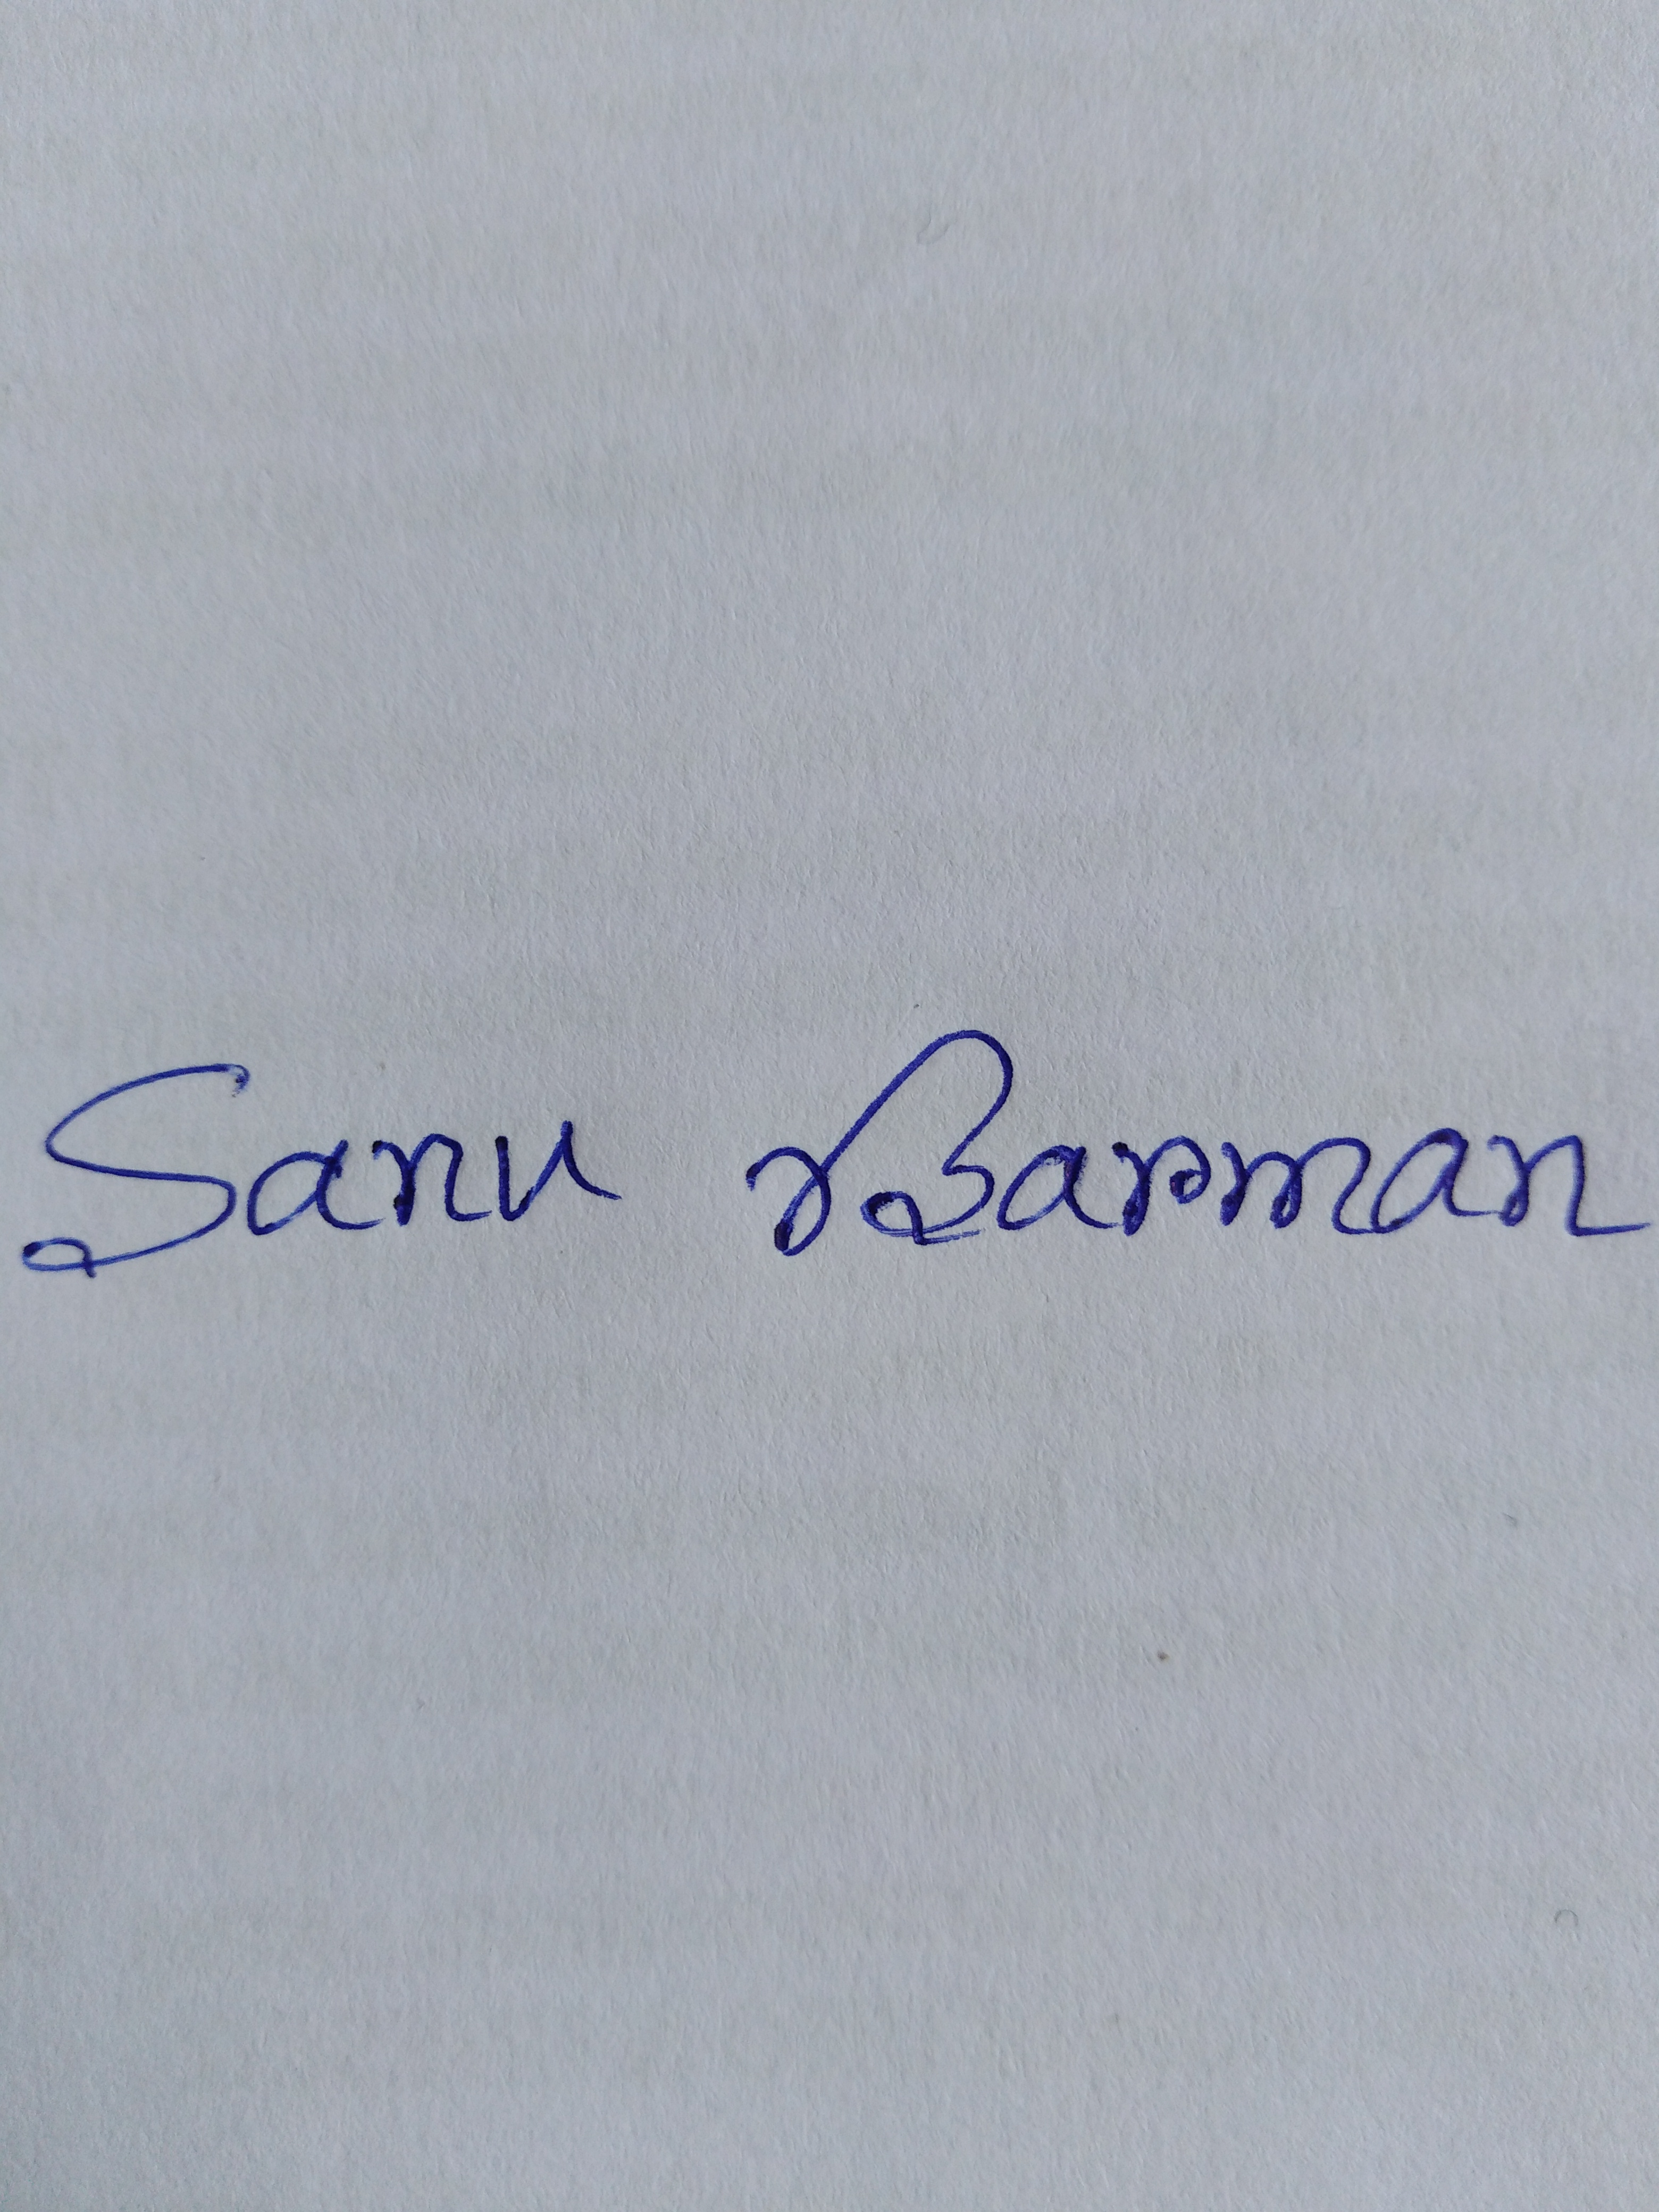 Sanu Barman